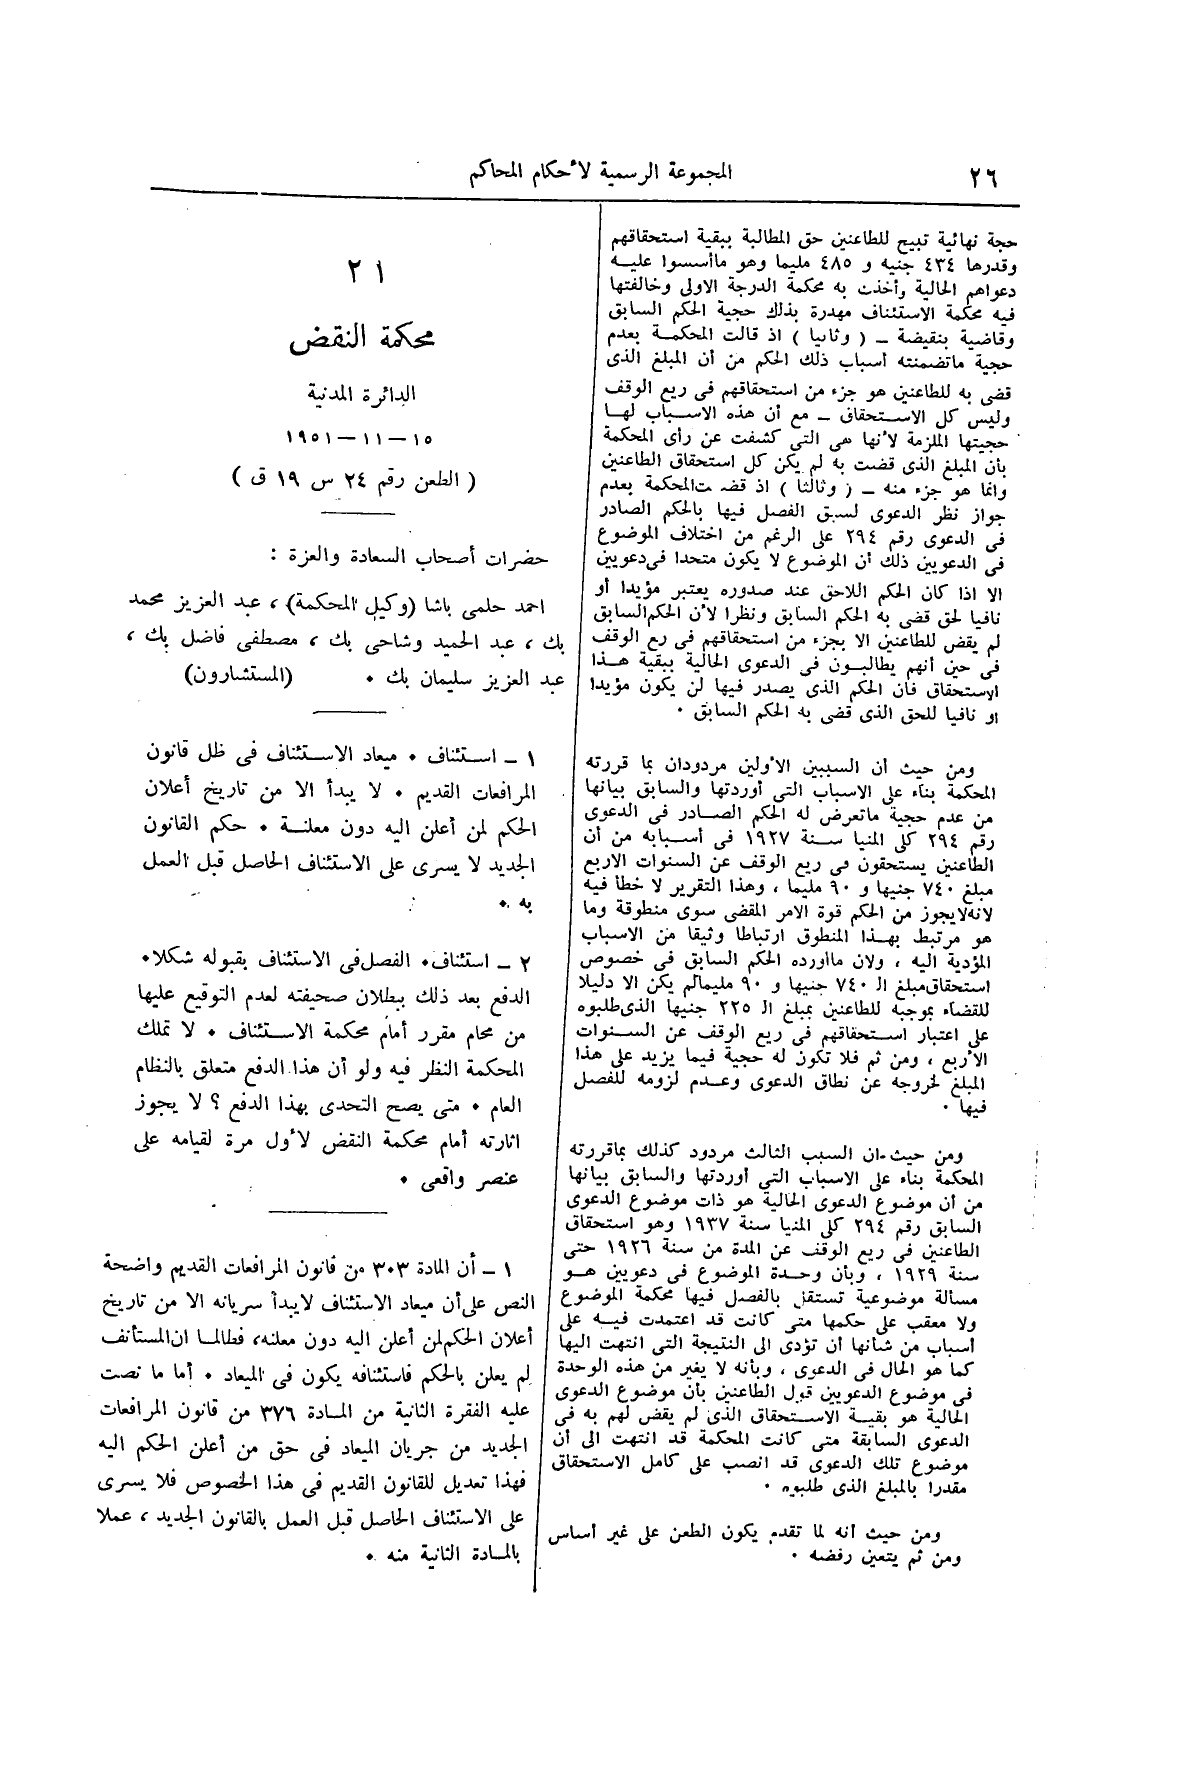 ٢٦
المجموعة الرسمية لأحكام المحاكم
حجة نهائية تبيح للطاعنين حق المطالبة ببقية استحقاقهم
وقدرها ٤٣٤ جنيه و ٤٨٥ مليما وهو ماأسسوا عليه
دعواهم الحالية وأخذت به محكمة الدرجة الاولى وخالفتها
فيه محكمة الاستئناف مهدرة بذلك حجية الحكم السابق
وقاضية بنقيضة ــ ( وثانيا ) اذ قالت المحكمة بعدم
حجية ماتضمنته أسباب ذلك الحكم من أن المبلغ الذى
قضى به للطاعنين هو جزء من استحقاقهم فى ريع الوقف
وليس كل الاستحقاق ــ مع أن هذه الاسباب لها
حجيتها الملزمة لأنها هى التى كشفت عن رأى المحكمة
بأن المبلغ الذى قضت به لم يكن كل استحقاق الطاعنين
وانما هو جزء منه ــ ( وثالثا ) اذ قضت المحكمة بعدم
جواز نظر الدعوى لسبق الفصل فيها بالحكم الصادر
فى الدعوى رقم ٢٩٤ على الرغم من اختلاف الموضوع
فى الدعويين ذلك أن الموضوع لا يكون متحدا فى دعويين
الا اذا كان الحكم اللاحق عند صدوره يعتبر مؤيدا أو
نافيا لحق قضى به الحكم السابق ونظرا لأن الحكم السابق
لم يقض للطاعنين الا بجزء من استحقاقهم فى رع الوقف
فى حين أنهم يطالبون فى الدعوى الحالية ببقية هذا
الاستحقاق فان الحكم الذى يصدر فيها لن يكون مؤيدا
او نافيا للحق الذى قضى به الحكم السابق ٠
ومن حيث أن السببين الأولين مردودان بما قررته
المحكمة بناء على الاسباب التى أوردتها والسابق بيانها
من عدم حجية ماتعرض له الحكم الصادر فى الدعوى
رقم ٢٩٤ كلى المنيا سنة ١٩٢٧ فى أسبابه من أن
الطاعنين يستحقون فى ريع الوقف عن السنوات الاربع
مبلغ ٧٤٠ جنيها و ٩٠ مليما ، وهذا التقرير لا خطأ فيه
لانه لايجوز من الحكم قوة الامر المقضى سوى منطوقة وما
هو مرتبط بهذا المنطوق ارتباطا وثيقا من الاسباب
المؤدية اليه ، ولان ماأورده الحكم السابق فى خصوص
استحقاق مبلغ الـ ٧٤٠ جنيها و ٩٠ مليمالم يكن الا دليلا
للقضاء بموجبه للطاعنين بمبلغ الـ ٢٢٥ جنيها الذى طلبوه
على اعتبار استحقاقهم فى ريع الوقف عن السنوات
الأربع ، ومن ثم فلا تكون له حجية فيما يزيد على هذا
المبلغ لخروجه عن نطاق الدعوى وعدم لزومه للفصل
فيها ٠
ومن حيث ان السبب الثالث مردود كذلك بماقررته
المحكمة بناء على الاسباب التى أوردتها والسابق بيانها
من أن موضوع الدعوى الحالية هو ذات موضوع الدعوى
السابق رقم ٢٩٤ كلى المنيا سنة ١٩٣٧ وهو استحقاق
الطاعنين فى ريع الوقف عن المدة من سنة ١٩٢٦ حتى
سنة ١٩٢٩ ، وبأن وحدة الموضوع فى دعويين هو
مسألة موضوعية تستقل بالفصل فيها محكمة الموضوع
ولا معقب على حكمها متى كانت قد اعتمدت فيه على
أسباب من شأنها أن تؤدى الى النتيجة التى انتهت اليها
كما هو الحال فى الدعوى ، وبأنه لا يغير من هذه الوحدة
فى موضوع الدعويين قول الطاعنين بأن موضوع الدعوى
الحالية هو بقية الاستحقاق الذى لم يقض لهم به فى
الدعوى السابقة متى كانت المحكمة قد انتهت الى أن
موضوع تلك الدعوى قد انصب على كامل الاستحقاق
مقدرا بالمبلغ الذى طلبوه ٠
ومن حيث أنه لما تقدم يكون الطعن على غير أساس
ومن ثم يتعين رفضه ٠
٢١
محكمة النقض
الدائرة المدنية
١٥ – ١١ – ١٩٥١
( الطعن رقم ٢٤ س ١٩ ق )
حضرات أصحاب السعادة والعزة :
احمد حلمى باشا (وكيل المحكمة) ، عبد العزيز محمد
بك ، عبد الحميد وشاحى بك ، مصطفى فاضل بك ،
عبد العزيز سليمان بك ٠ (المستشارون)
١ ــ استئناف ٠ ميعاد الاستئناف فى ظل قانون
المرافعات القديم ٠ لا يبدأ الا من تاريخ أعلان
الحكم لمن أعلن اليه دون معلنة ٠ حكم القانون
الجديد لا يسرى على الاستئناف الحاصل قبل العمل
به ٠
٢ ــ استئناف٠ الفصل فى الاستئناف بقبوله شكلا٠
الدفع بعد ذلك ببطلان صحيفته لعدم التوقيع عليها
من محام مقرر أمام محكمة الاستئناف ٠ لا تملك
المحكمة النظر فيه ولو أن هذا الدفع متعلق بالنظام
العام ٠ متى يصح التحدى بهذا الدفع ؟ لا يجوز
اثارته أمام محكمة النقض لأول مرة لقيامه على
عنصر واقعى ٠
١ ــ أن المادة ٣٠٣ من قانون المرافعات القديم واضحة
النص على أن ميعاد الاستئناف لايبدأ سريانه الا من تاريخ
أعلان الحكم لمن أعلن اليه دون معلنه، فطالما ان المستأنف
لم يعلن بالحكم فاستئنافه يكون فى الميعاد ٠ أما ما نصت
عليه الفقرة الثانية من المادة ٣٧٦ من قانون المرافعات
الجديد من جريان الميعاد فى حق من أعلن الحكم اليه
فهذا تعديل للقانون القديم فى هذا الخصوص فلا يسرى
على الاستئناف الحاصل قبل العمل بالقانون الجديد ، عملا
بالمادة الثانية منه ٠